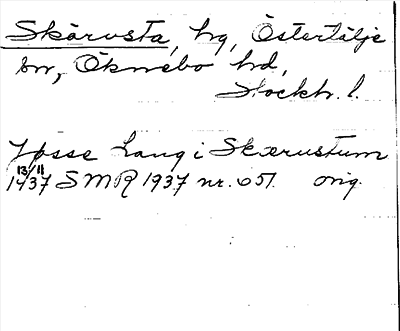 Skärusta, hg, Östertälje
sn, Öknebo hd,
Stockh. l.
Jösse Lang i Skærustum
13/11
1437 SMR 1937 nr. 051. orig.